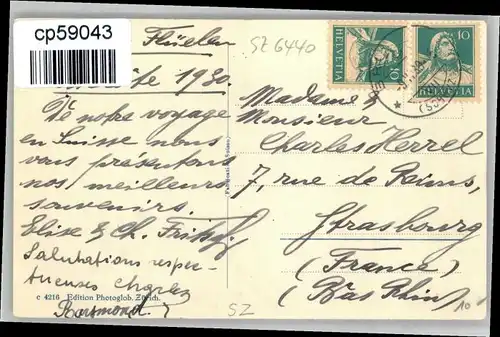 cp59043
Flüelen
SZ 6440
1930.
De notre voyage
en Suisse nous
vous présentons
nos meilleurs
souvenirs.
Elise & Ch. Fritsch
Salutations respec-
tueuses Charles
c 4216 Edition Photoglob. Zürich.
HELVETIA 10
HELVETIA 10
Madame &
Monsieur
Charles Herrel
7, rue de Reims,
Strasbourg
(France)
(Bas Rhin)
SZ
10